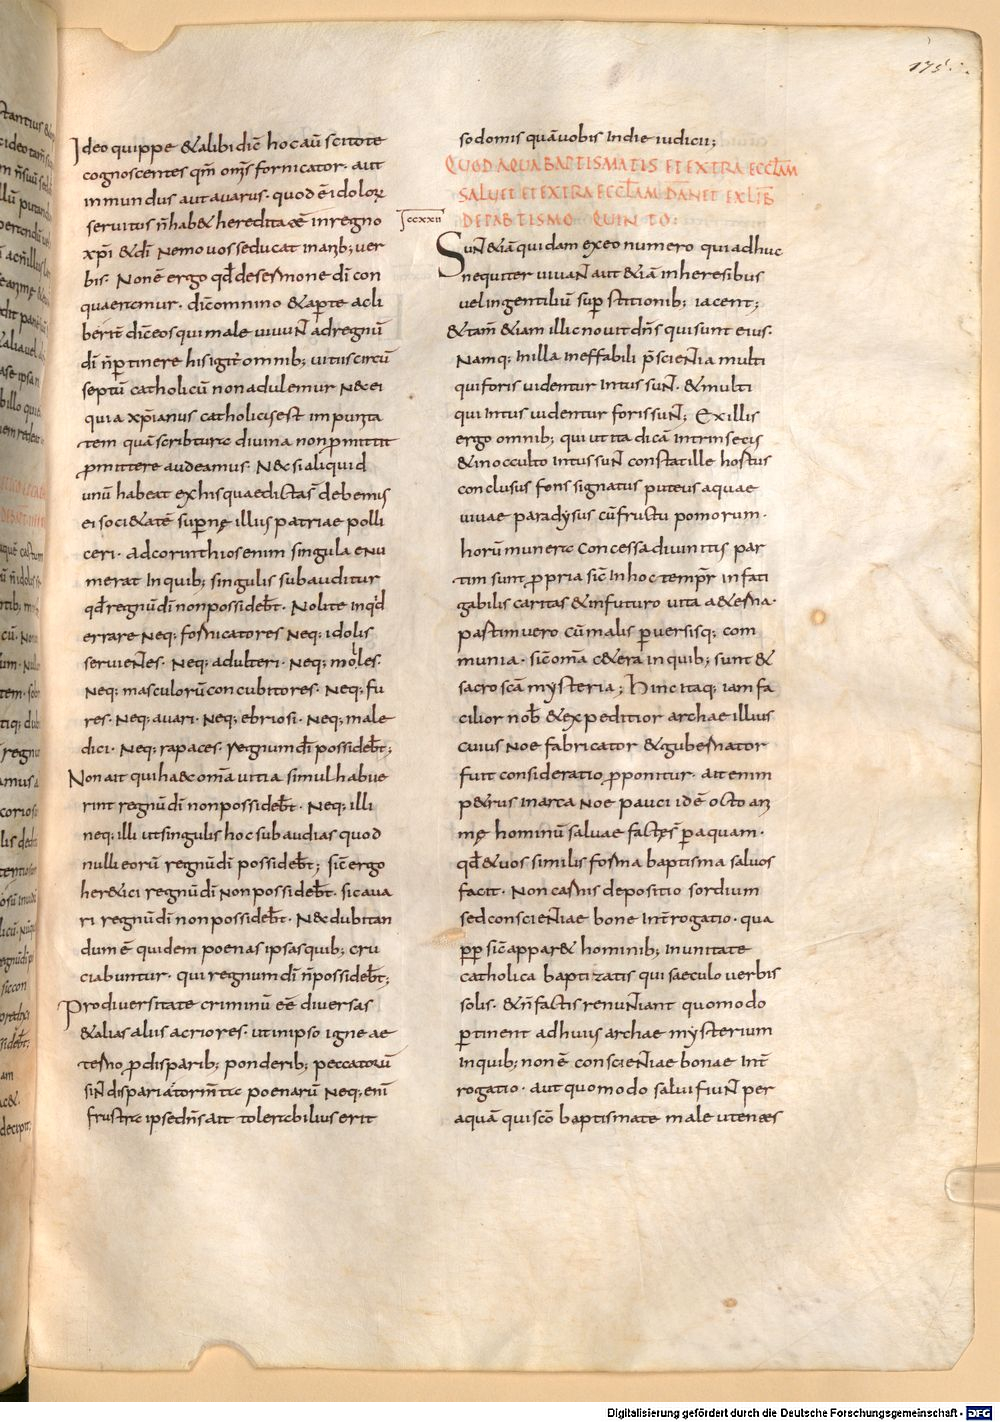 175
Ideo quippe & alibi dic̄ hoc aū scitote
cognoscentes qm̄ om̄s fornicator· aut
inmundus aut auarus· quod ē idolorꝝ
seruitus n̄ hab& heredita&ē in regno
xp̄i & dī Nemo uos seducat inanib; uer
bis· Non ē ergo qđ de se sermone dī con
quaerımur· dic̄ omnino & aꝑte ac li
berr̄ dic̄ eos qui male uiuuNt ad regnū
dī n̄ ꝑtinere his igit̄ omnib; uitus circū
septū catholicū non adulemur N& ei
quia xp̄ianus catholicus est impunita
tem quā scribturae diuina non ꝑmittit
ꝓmittere audeamus· N& si aliquid
unū habeat ex his quae dicta s̄ debemus
ei soci&atē supernę illius patriae polli
ceri· ad corinthios enim singula enu
merat In quib; singulis subauditur
qđ regnū dī non possideb̄t· Nolite inq'd
errare Neq; fornicatores Neq; idolis
serui&Ntes· Neq; adulteri· Neq; molles·
Neq; masculorū concubitores· Neq; fu
res· Neq; auari· Neq; ebriosi· Neq; male
dici· Neq; rapaces· regnum dī possideb̄t;
Non ait qui haec om̄a uitia simul habue
rint regnū dī non possideb̄t· Neq; illi
neq; illi ut singulis hoc subaudias quod
nulli eorū regnū dī possideb̄t; sic̄ ergo
her&ici regnū dī Non possideb̄t· sic aua
ri regnū dī non possideb̄t· N& dubitan
dum ē quidem poenas ipsas quib; cru
ciabuntur· qui regnum dī n̄ possideb̄t;
Pro diuersitate criminū eē diuersas
& alias aliis acriores· ut in ipso igne ae
terno ꝓ disparib; ponderib; peccatorū
siNt disparia torm̄ta poenarū Neq; enī
frustra ipse dn̄s ait tolerabilius erit
sodomis quā uobis In die iudicii;
QUOD AQUA BAPTISMATIS ET EXTRA ECCL̄AM
SALUET ET EXTRA ECCL̄AM DĀNET EX LIB̄
DE PABTISMO QUINTO:
ccxxii
SuNt & iā quidam ex eo numero qui adhuc
nequiter uiuaNt aut & iā in heresibus
uel in gentiliū suꝑstitionib; iacent;
& tam̄ & iam illic nouit dn̄s qui sunt eius·
Namq; in illa Ineffabili p̄scieNtia multi
qui foris uidentur Intus suNt· & multi
qui Intus uidentur foris suNt; Ex illis
ergo omnib; qui ut ita dicā intrinsecis
& in occulto Intus suNt constat ille hortus
conclusus fons signatus puteus aquae
uiuae paradysus cū fructu pomorum·
horū munera concessa diuinitus par
tim sunt ꝓpria sic̄ In hoc temp̄r infati
gabilis caritas & in futuro uita a&erna·
partim uero cū malis ꝑuersisq; com
munia· sic̄ om̄a c&era in quib; sunt &
sacro sc̄a mysteria; Hinc itaq; iam fa
cilior nob̄ & expeditior archae illius
cuius Noe fabricator & gubernator
fuit consideratio ꝓponitur· ait enim
p&rus in arca Noe pauci id ē octo ani
mę hominū saluae factęs̄ ꝑ aquam·
qđ & uos similis forma baptisma saluos
facit· Non carnis depositio sordium
sed conscieNtiae bone Int̄rogatio· qua
ꝓp̄ sic̄ appar& hominib; In unitate
catholica baptizatis qui saeculo uerbis
solis· & n̄ factis renuNtiant quomodo
ꝑtinent ad huius archae mysterium
In quib; non ē conscieNtiae bonae Int̄
rogatio· aut quomodo salui fiuNt per
aquā qui sc̄o baptismate male utentes
Digitalisierung gefördert durch die Deutsche Forschungsgemeinschaft - DFG